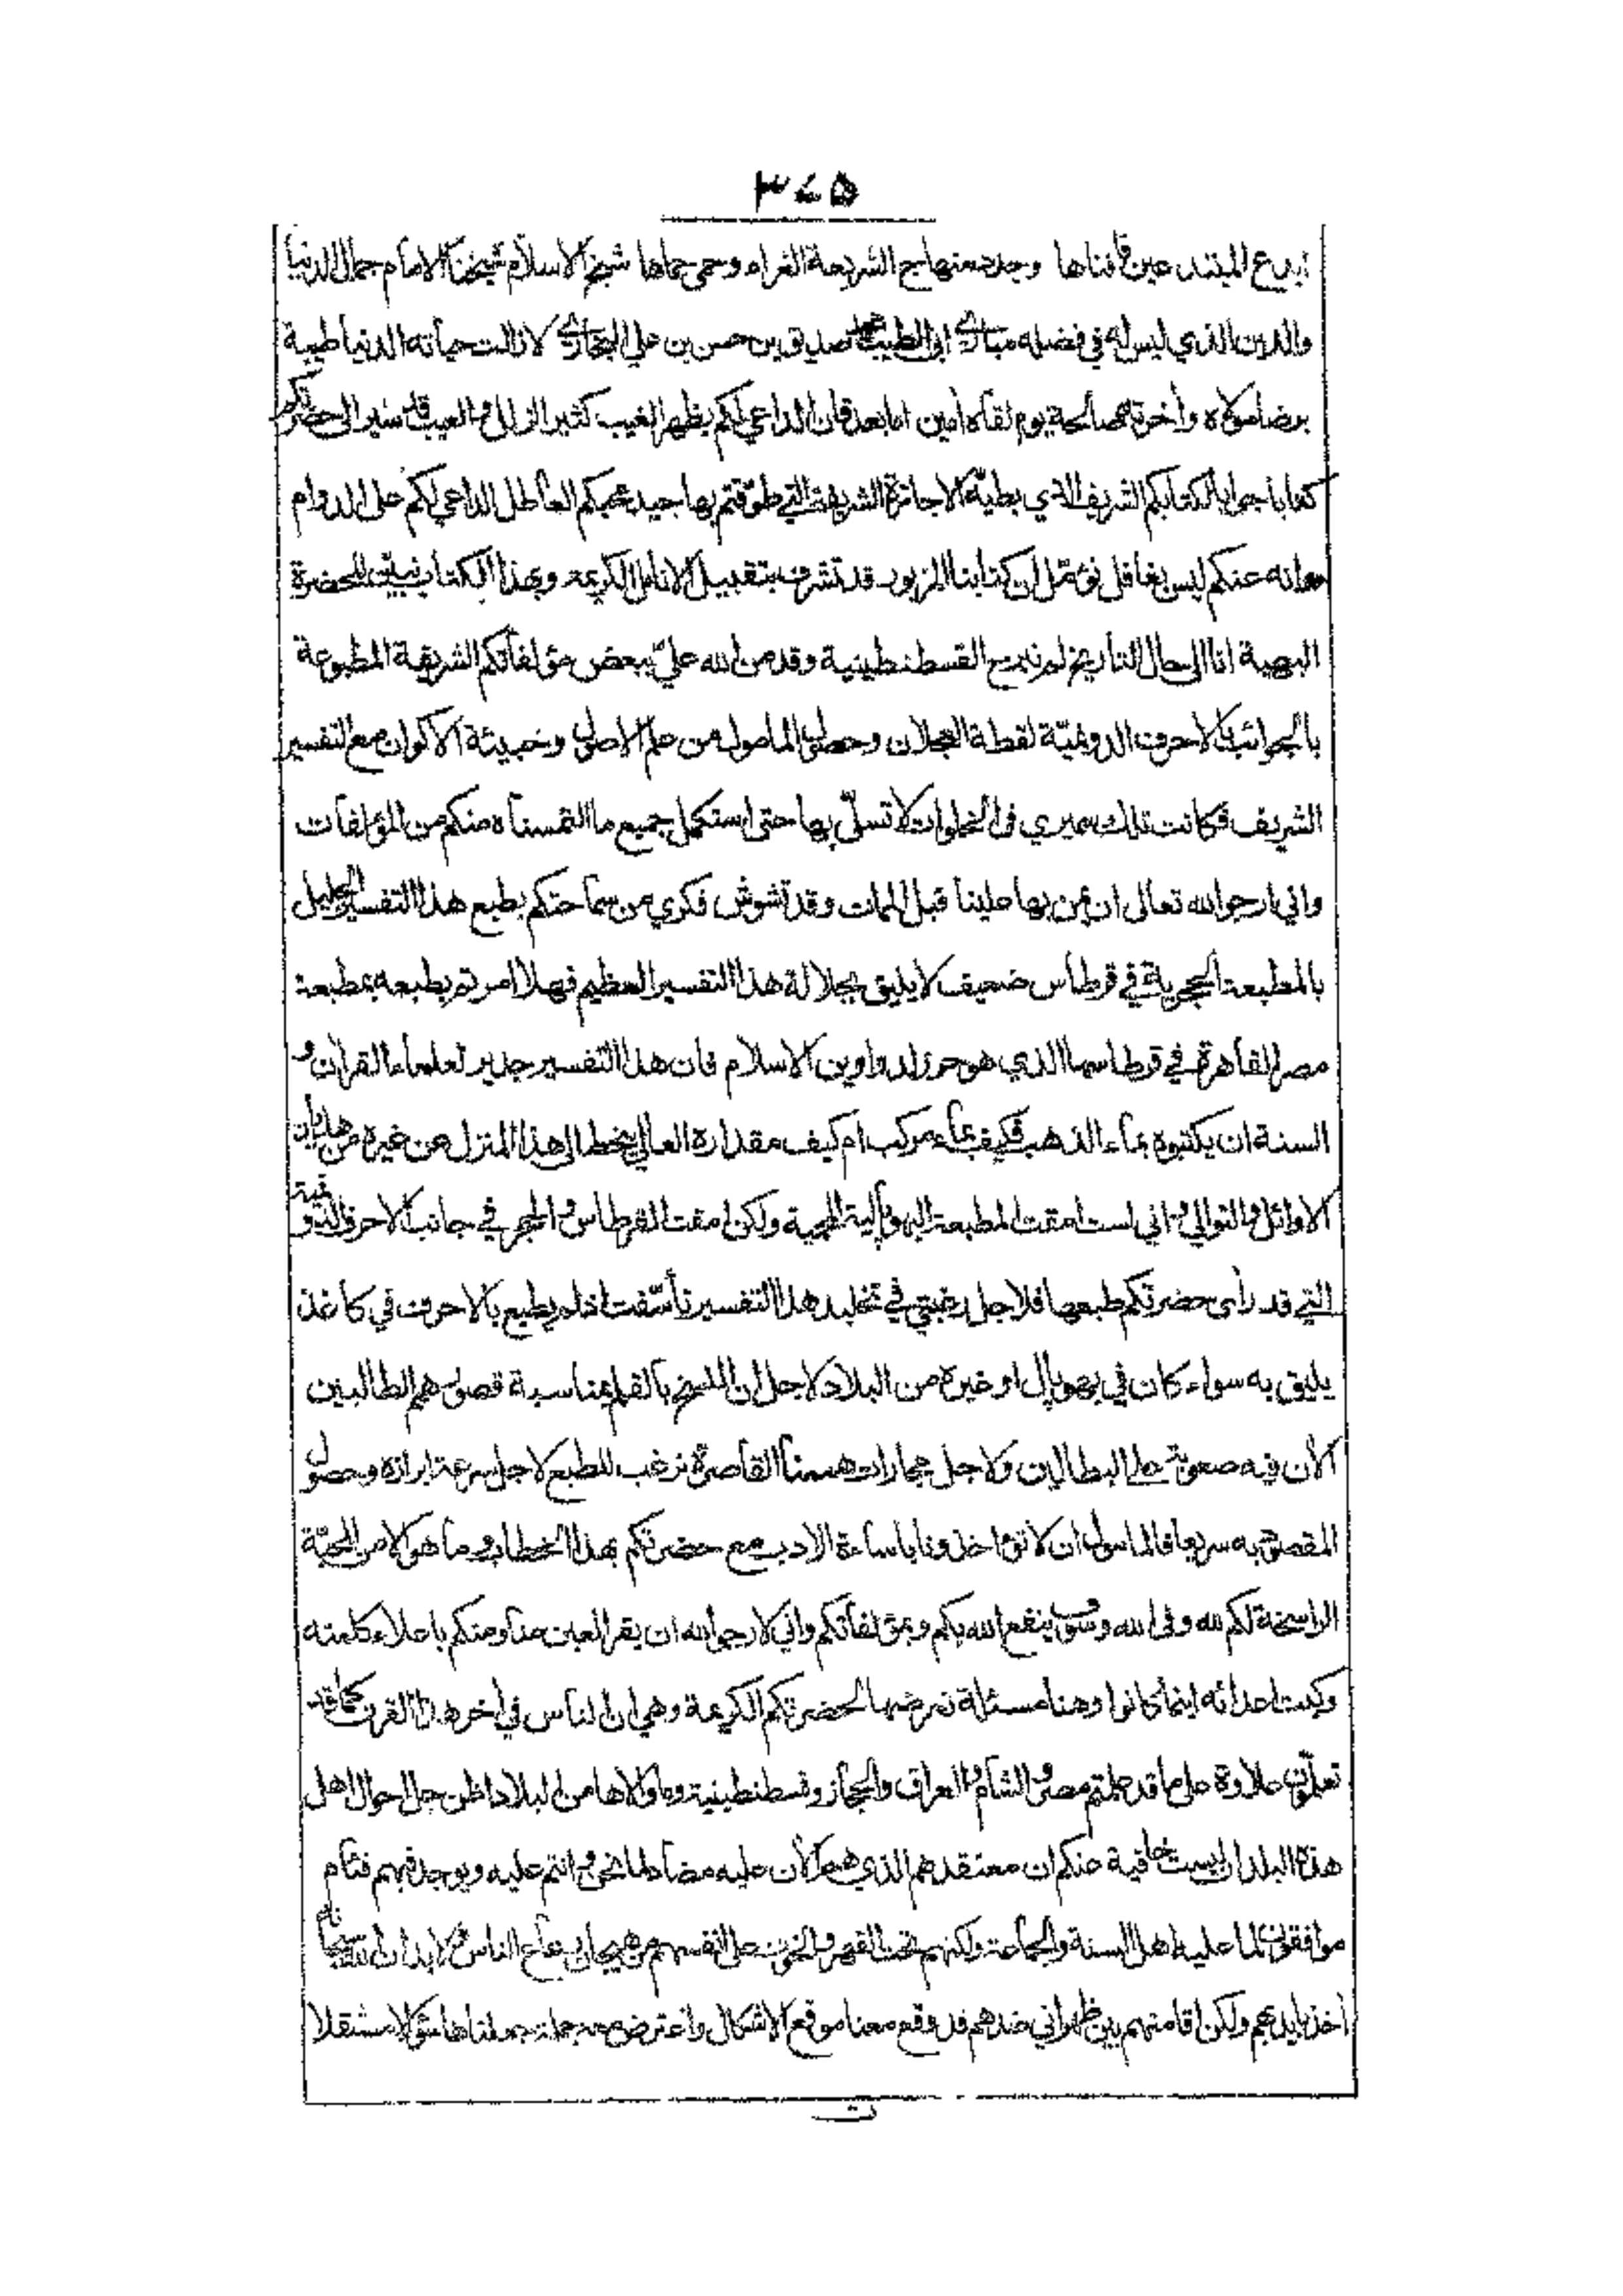 ٣٤٥
بدع المبتدعين فافناها وجدد منهاج الشريعة الغراء وحمى حماها شيخ الاسلام شيخنا الامام جمال الدنيا
والدين الذي ليس له في فضله مباري ابى الطيب محمد صديق بن حسن بن علي البخاري لا زالت حياته الدنيا طيبة
برضا مولاه وأخرته صالحة يوم لقاه أمين اما بعد فان الداعي لكم بظهر الغيب كثير الزلل والعيب قد سير الى حضرتكم
كتابا جوابا لكتابكم الشريف الذي بطيه الاجازة الشريفة التي طوقتم بها جيد محبكم العاطل الداعي لكم على الدوام
وانه عنكم ليس بغافل نؤمل ان كتابنا المزبور قد تشرف بتقبيل الانامل الكريمة وبهذا الكتاب نبين للحضرة
البهية انا الى حال التاريخ لم نبرح القسطنطينية وقد من الله علي ببعض مؤلفاتكم الشريفة المطبوعة
بالجوائب بالاحرف الدوغية لقطة العجلان وحصول المامول من علم الاصول وخبيئة الاكوان مع التفسير
الشريف فكانت تلك سميري في الخلوات لا تسلى بها حتى استكمل جميع ما التمسناه منكم من المؤلفات
واني ارجو الله تعالى ان يمن بها علينا قبل الممات وقد تشوش فكري من سماحتكم بطبع هذا التفسير الجليل
بالمطبعة الحجرية في قرطاس ضعيف لا يليق بجلالة هذا التفسير العظيم فهلا امرتم بطبعه بمطبعة
مصر القاهرة في قرطاسها الذي هو حرز لدواوين الاسلام فان هذا التفسير جدير لعلماء القرآن و
السنة ان يكتبوه بماء الذهب فكيف بماء مركب ام كيف مقداره العالي يحط الى هذا المنزل من غيره من
الاوائل والتوالي واني لست امقت المطبعة البهوپالية البهية ولكن امقت القرطاس والحجر في جانب الاحرف الدوغية
التي قد رأى حضرتكم طبعها فلاجل رغبتي في تخليد هذا التفسير تأسفت اذ لم يطبع بالاحرف في كاغذ
يليق به سواء كان في بهوپال او غيره من البلاد لاجل ان النسخ بالقلم بمناسبة قصور همم الطالبين
الأن فيه صعوبة على البطالين ولاجل مجارات همتنا القاصرة نرغب للطبع لاجل سرعة ابرازه وحصول
المقصود به سريعا فالمامول ان لا تؤاخذونا باساءة الادب مع حضرتكم بهذا الخطاب وما هو الا من المحبة
الراسخة لكم لله وفي الله وسوف ينفع الله بكم وبمؤلفاتكم واني لارجو الله ان يقر العين منا ومنكم باعلاء كلمته
وكبت اعدائه اينما كانوا وهنا مسئلة نعرضها لحضرتكم الكريمة وهي ان الناس في أخر هذا القرن كما قد
علاوة على ما قد علمتم مصر والشام والعراق والحجاز وقسطنطينية وما والاها من البلاد اظن جل احوال اهل
هذه البلدان ليست خافية عنكم ان معتقدهم الذي هم الأن عليه مضاد لما نحن وانتم عليه ويوجد فيهم فئام
موافقون لما عليه اهل السنة والجماعة ولكنهم تحت القهر والخوف على انفسهم من هيجان رعاع الناس ولا بد ان الله سبحانه
أخذ بايديهم ولكن اقامتهم بين ظهراني ضدهم قد وقع معنا موقع الاشكال واعترض من جملة جعلناها سؤالا مستقلا